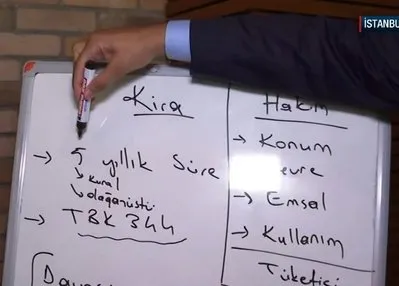 İSTANBU
Kira
→ 5 yıllık Süre
↳ kural
↳ olağanüstü
→ TBK 344
Hakim
→ Konum
evre
→ Emsal
→ Kullanım
Tüketici